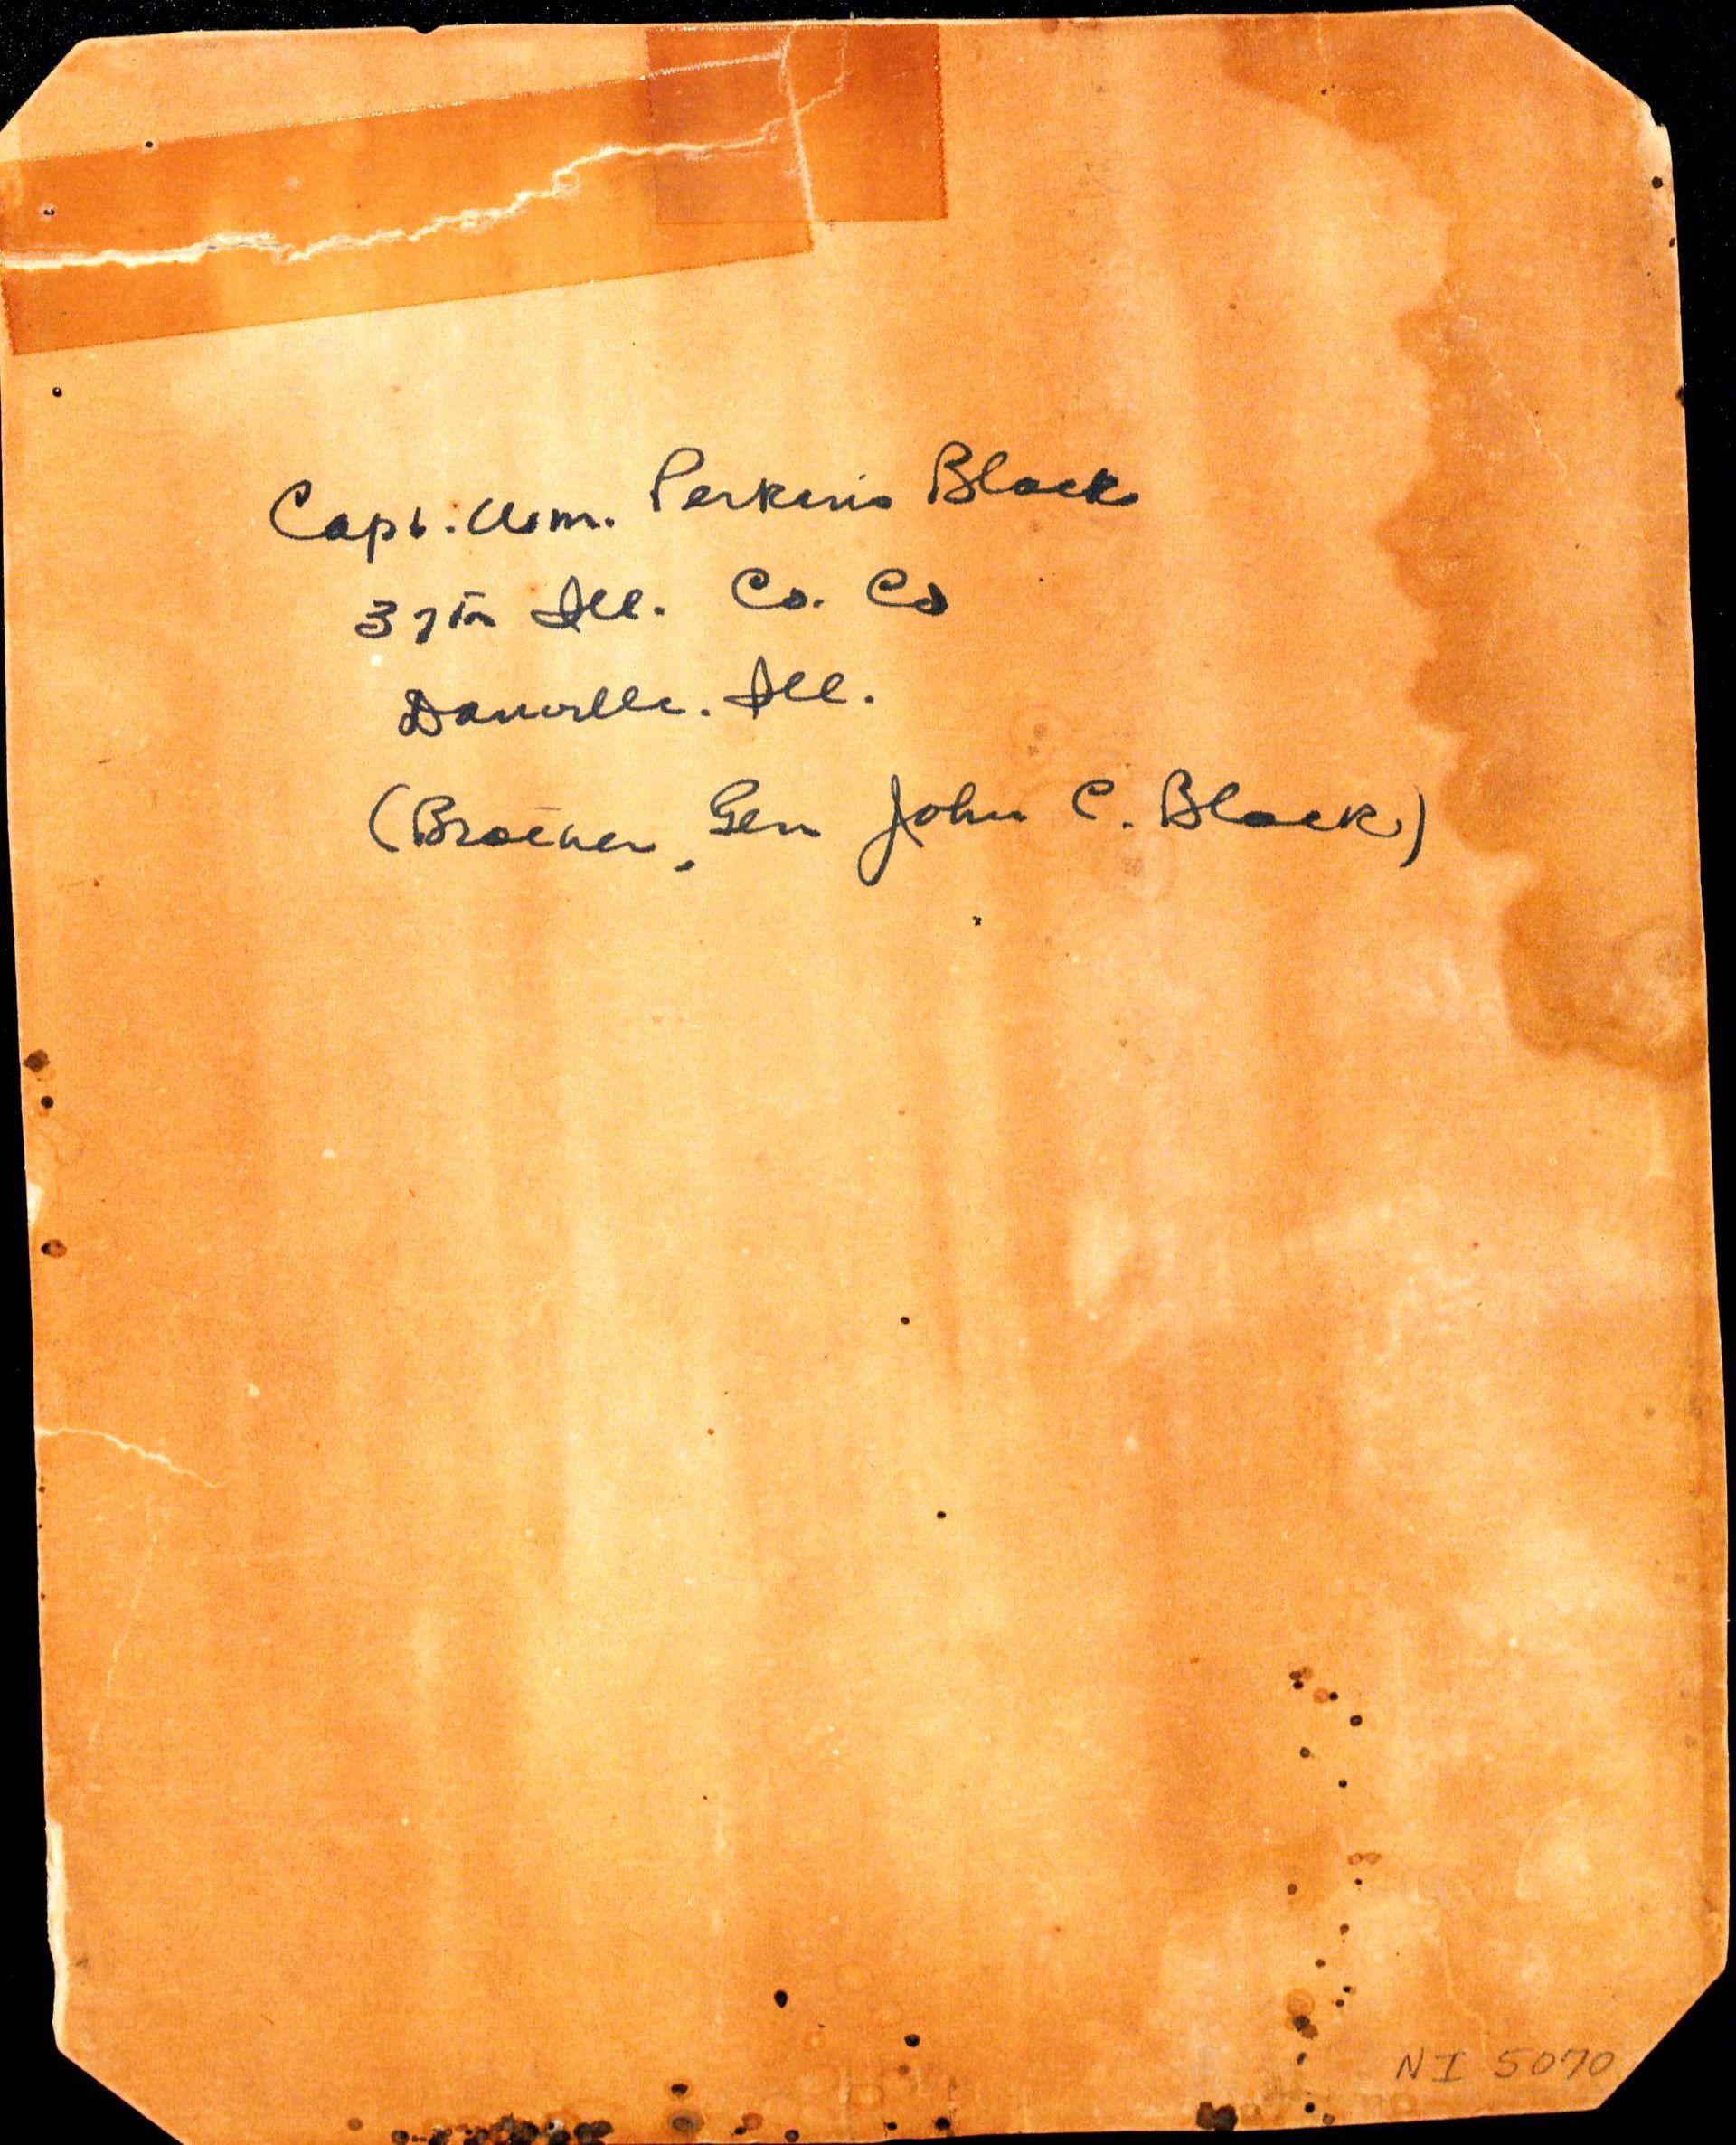 Capt. Wm. Perkins Black
37th Ill. Co. Co
Danville. Ill.
(Brother, Gen John C. Black)
NI 5070